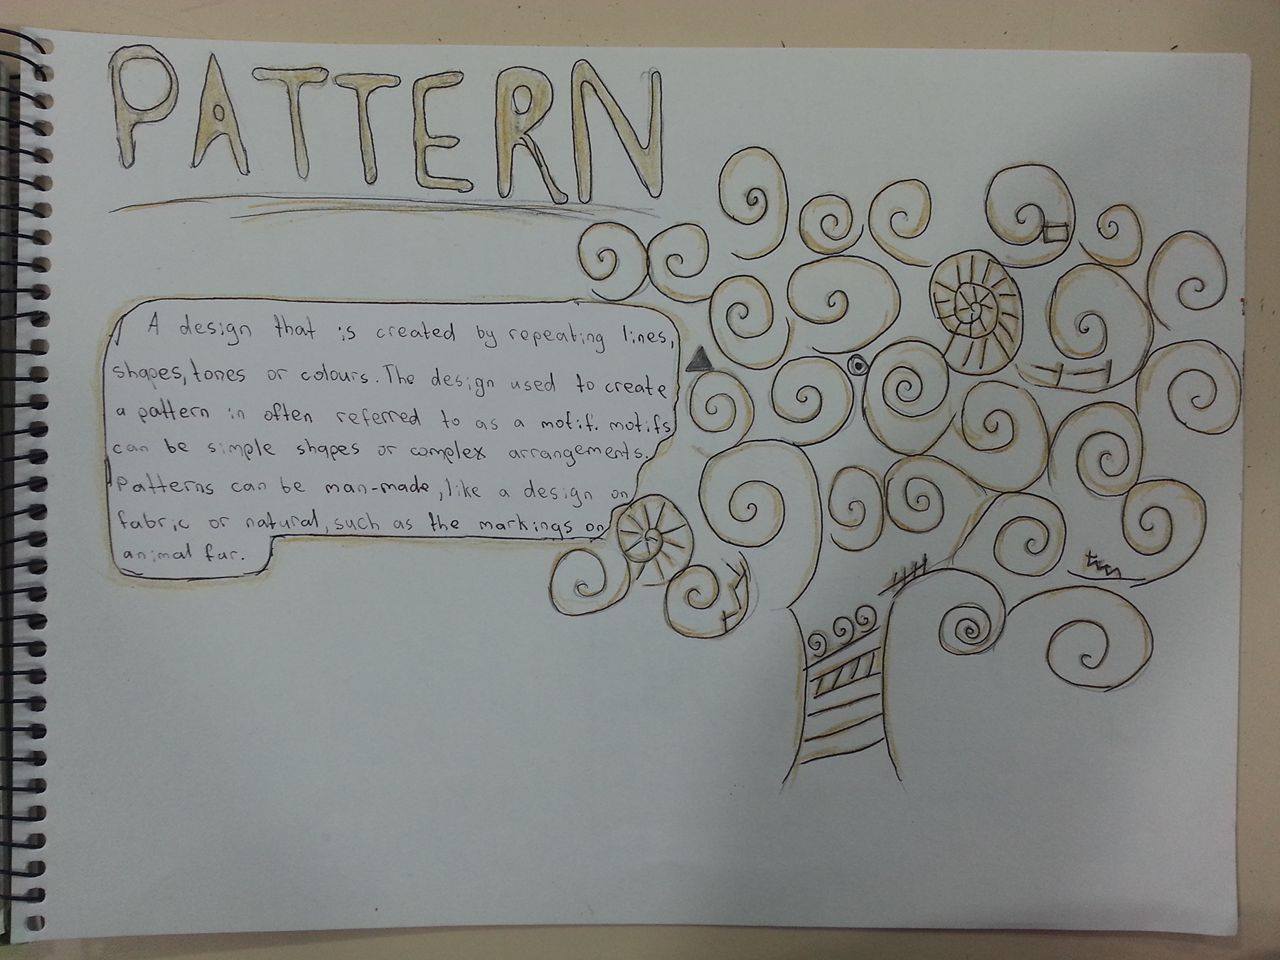 PATTERN
A design that is created by repeating lines,
shapes, tones or colours. The design used to create
a pattern in often referred to as a motif. motifs
can be simple shapes or complex arrangements.
Patterns can be man-made, like a design on
fabric or natural, such as the markings on
animal fur.